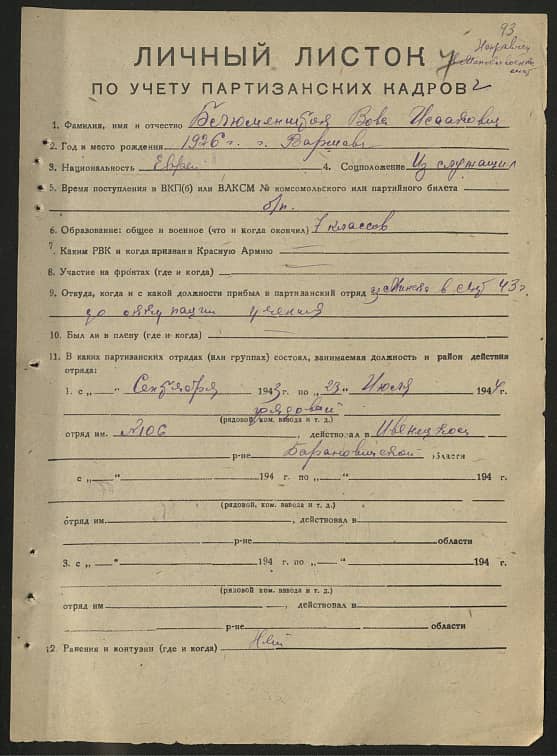 93
ЛИЧНЫЙ ЛИСТОК
ПО УЧЕТУ ПАРТИЗАНСКИХ КАДРОВ
1. Фамилия, имя и отчество Вова
2. Год и место рождения 1926 г. г. Варшава
3. Национальность Еврей 4. Соцположение Из служащих
5. Время поступления в ВКП(б) или ВЛКСМ № комсомольского или партийного билета
б/п.
6. Образование: общее и военное (что и когда окончил) 7 классов
7. Каким РВК и когда призван в Красную Армию
8. Участие на фронтах (где и когда)
9. Откуда, когда и с какой должности прибыл в партизанский отряд из Минска в 43 г.
до оккупации ученик
10. Был ли в плену (где и когда)
11. В каких партизанских отрядах (или группах) состоял, занимаемая должность и район действия
отряда:
1. с „—“ Сентября 1943 г. по „23“ Июля 1944 г.
рядовой
(рядовой, ком. взвода и т. д.)
отряд им. №106, действовал в Ивенецком
р-не Барановичской области
с „—“ 194 г. по „—“ 194 г.
(рядовой, ком. взвода и т. д.)
отряд им. , действовал в
р-не области
3. с „—“ 194 г. по „—“ 194 г.
(рядовой, ком. взвода и т. д.)
отряд им , действовал в
р-не области
12. Ранения и контузии (где и когда) Нет